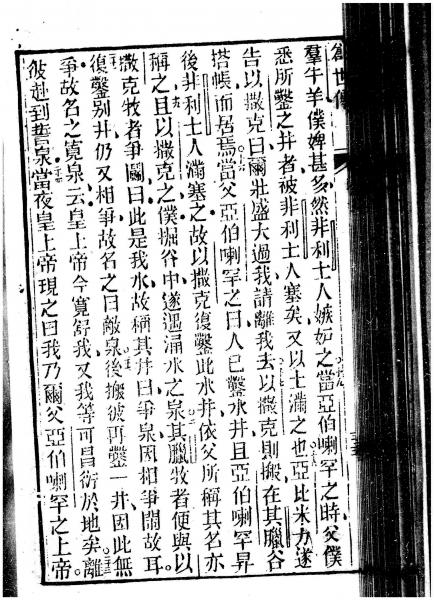 創世傳
羣牛羊僕婢甚多然非利士人嫉妒之當亞伯喇罕之時父僕
悉所鑿之井者被非利士人塞矣又以土滿之也亞比米力遂
告以撒克曰爾壯盛大過我請離我去以撒克則搬在其臘谷
塔帳而居焉當父亞伯喇罕之日人已鑿水井且亞伯喇罕昇
後非利士人滿塞之故以撒克復鑿此水井依父所稱其名亦
稱之且以撒克之僕掘谷中遂遇涌水之泉其臘牧者便與以
撒克牧者爭鬭曰此是我水故稱其井曰爭泉因相爭鬭故耳
復鑿別井仍又相爭故名之曰敵泉後搬彼再鑿一井因此無
爭故名之寬泉云皇上帝今寬舒我又我等可昌衍於地矣離
彼赴到誓泉當夜皇上帝現之曰我乃爾父亞伯喇罕之上帝